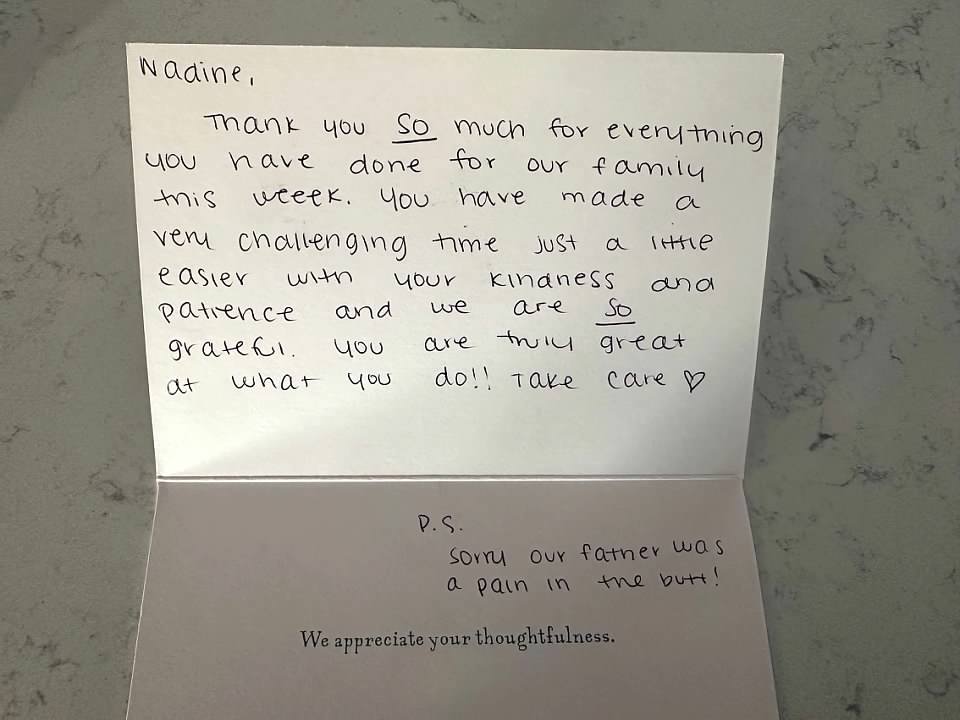 Nadine,
Thank you so much for everything
you have done for our family
this week. You have made a
very challenging time just a little
easier with your kindness and
patience and we are so
grateful. You are truly great
at what you do!! Take care ♡
P.S.
Sorry our father was
a pain in the butt!
We appreciate your thoughtfulness.